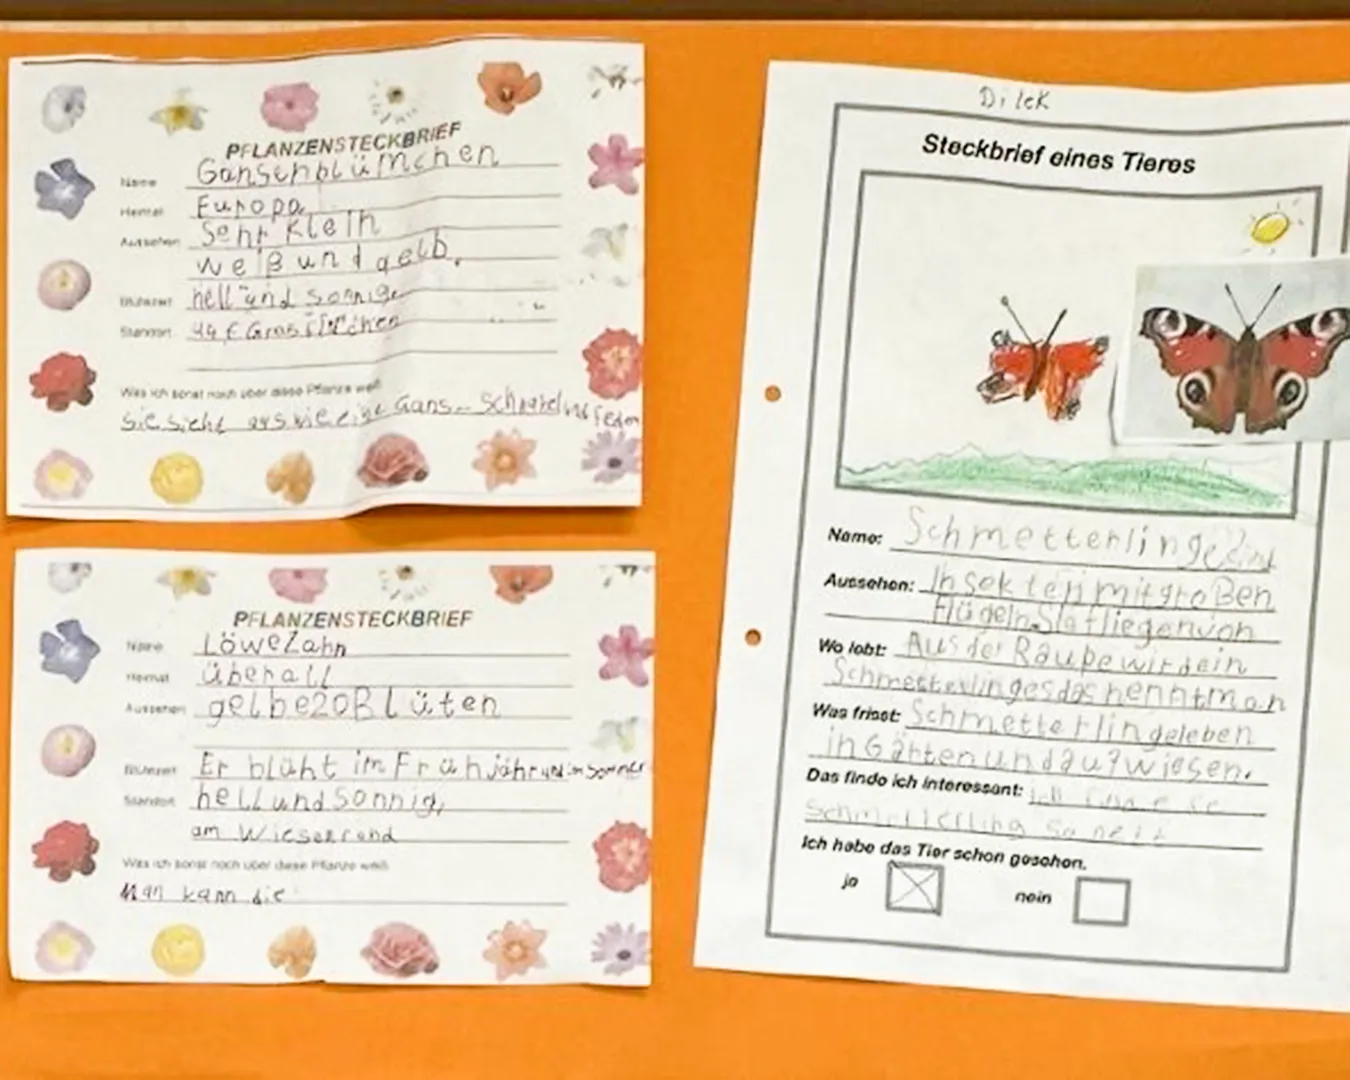 PFLANZENSTECKBRIEF
Name Gänsenblümchen
Heimat Europa
Aussehen Sehr klein
weiß und gelb.
Blütezeit hell und sonnig
Standort auf Grasflächen
Was ich sonst noch über diese Pflanze weiß
sie sieht aus wie eine Gans Schnabel und Federn
PFLANZENSTECKBRIEF
Name Löwezahn
Heimat überall
Aussehen gelbe 20 Blüten
Blütezeit Er blüht im Frühjahr und im Sommer
Standort hell und sonnig,
am Wiesenrand
Was ich sonst noch über diese Pflanze weiß
Man kann die
Dilek
Steckbrief eines Tieres
Name: Schmetterlinge sind
Aussehen: Insekten mit großen
Flügeln. Sie fliegen von
Wo lebt: Aus der Raupe wird ein
Schmetterling es das nennt man
Was frisst: Schmetterling leben
in Gärten und auf wiesen.
Das finde ich interessant: Ich finde
schmetterling so nett
Ich habe das Tier schon gesehen.
ja nein